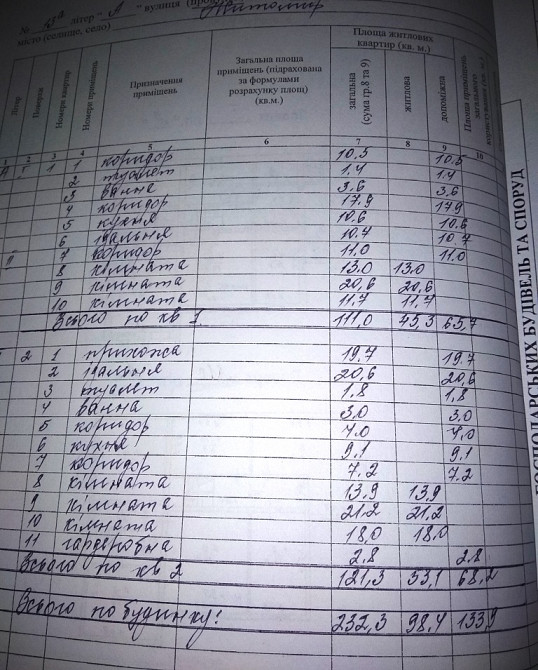 № літер "А" вулиця Житомир
місто (селище, село)
Літер
Номери квартир
Номери приміщень
Призначення приміщень
Загальна площа приміщень (підрахована за формулами розрахунку площ) (кв.м.)
Площа житлових квартир (кв. м.)
загальна (сума гр.8 та 9)
житлова
допоміжна
1 2 3 4 5 6 7 8 9 10
1 1 коридор 10.5 10.5
2 туалет 1.4 1.4
3 ванна 3.6 3.6
4 коридор 17.9 17.9
5 кухня 10.6 10.6
6 їдальня 10.7 10.7
7 коридор 11.0 11.0
8 кімната 13.0 13.0
9 кімната 20,6 20,6
10 кімната 11,7 11,7
Всього по кв 1 111,0 45,3 65,7
2 1 прихожа 19,7 19,7
2 їдальня 20,6 20,6
3 туалет 1,8 1,8
4 ванна 3,0 3,0
5 коридор 4.0 4,0
6 кухня 9,1 9,1
7 коридор 7,2 7,2
8 кімната 13,9 13,9
9 кімната 21,2 21,2
10 кімната 18,0 18,0
11 гардеробна 2,8 2.8
Всього по кв 2 121,3 53,1 68,2
Всього по будинку: 232,3 98,4 133,9
ГОСПОДАРСЬКИХ БУДІВЕЛЬ ТА СПОРУД